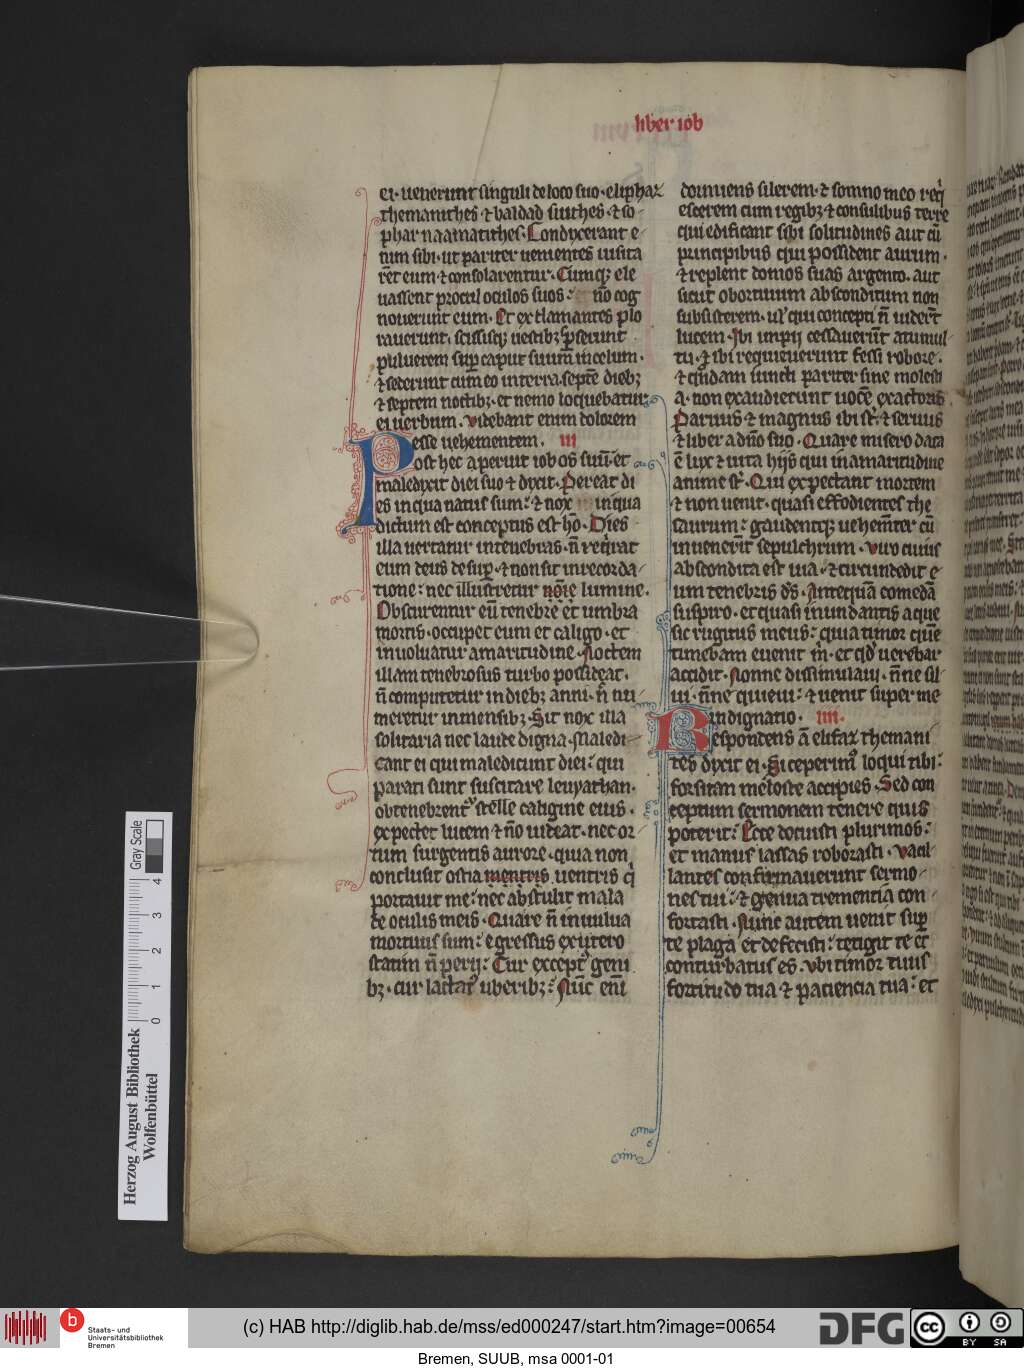 liber iob
ei· uenerunt singuli de loco suo· eliphaz
themanithes· ⁊ baldad suithes· ⁊ so-
phar naamatithes· Condyxerant e-
nim sibi· ut pariter uenientes uisita
rēt eum ⁊ consolarentur· Cumq; ele
uassent procul oculos suos: nō cog
nouerunt eum· Et exclamantes plo
rauerunt· scissisq; uestibz sp̱serunt
puluerem sup̱ caput suum in celum·
⁊ sederunt cum eo in terra· septē diebz
⁊ septem noctibz· et nemo loquebatur
ei uerbum· videbant enim dolorem
esse uehementem· III
Post hec aperuit iob os suū· et
maledyxit diei suo ⁊ dyxit· Pereat di
es in qua natus sum: ⁊ nox in qua
dictum est conceptus est hō· Dies
illa uertatur in tenebras· n̄ reqͥrat
eum deus desup̱· ⁊ non sit in recorda-
tione: nec illustretur lumine·
Obscurent eū tenebre et umbra
mortis· occupet eum et caligo· et
inuoluatur amaritudine· Noctem
illam tenebrosus turbo possideat·
n̄ computetur in diebz anni· n̄ nu-
meretur in mensibz· Sit nox illa
solitaria nec laude digna· Maledi-
cant ei qui maledicunt diei: qui
parati sunt suscitare leuyathan·
obtenebrentᷣ stelle caligine eius·
expectet lucem ⁊ nō uideat· nec or
tum surgentis aurore· quia non
conclusit ostia uentris qͥ
portauit me: nec abstulit mala
de oculis meis· Quare n̄ in uulua
mortuus sum: egressus ex utero
statim n̄ perij: Cur exceptᷣ geni
bz· cur lactatᷣ uberibz: Nūc enī
dormiens silerem· ⁊ somno meo reqͥ
escerem cum regibz ⁊ consulibus terre
qui edificant sibi solitudines aut cū
principibus qui possident aurum·
⁊ replent domos suas argento· aut
sicut obortiuum absconditum non
subsisterem· ulᷣ qui concepti n̄ uiderūt
lucem· Ibi impij cessauerūt a tumul-
tu· ⁊ ibi requieuerunt fessi robore·
⁊ qͦndam iuncti pariter sine molesti
a· non exaudierunt uocē exactoris
Paruus ⁊ magnus ibi sᷣt· ⁊ seruus
⁊ liber a dnō suo· Quare misero data
ē lux ⁊ uita hijs qui in amaritudine
anime sᷣt· Qui expectant mortem
⁊ non uenit· quasi effodientes the
saurum: gaudentq; uehemt̄er cū
inuenerīt sepulchrum· viro cuius
abscondita est uia· ⁊ circundedit e-
um tenebris ds̄· Antequā comedā
suspiro· et quasi inundantis aque
sic rugitus meus: quia timor quē
timebam euenit m̄· et qd̄ uerebar
accidit· Nonne dissimulaui· n̄ne sil-
ui· n̄ne quieui: ⁊ uenit super me
indignatio· IIII·
Respondens ā elifaz themani
tes dyxit ei· Si ceperimᷣ loqui tibi:
forsitan moleste accipies· Sed con
ceptum sermonem tenere quis
poterit: Ecce docuisti plurimos:
et manus lassas roborasti· vacil-
lantes confirmauerunt sermo-
nes tui: ⁊ genua trementia con-
fortasti· Nunc autem uenit sup̱
te plaga et defecisti: tetigit te et
conturbatus es· vbi timor tuus
fortitudo tua ⁊ paciencia tua: et
Gray Scale
4
3
2
1
0
Herzog August Bibliothek
Wolfenbüttel
b
Staats- und
Universitätsbibliothek
Bremen
(c) HAB http://diglib.hab.de/mss/ed000247/start.htm?image=00654
DFG
cc
BY
SA
Bremen, SUUB, msa 0001-01